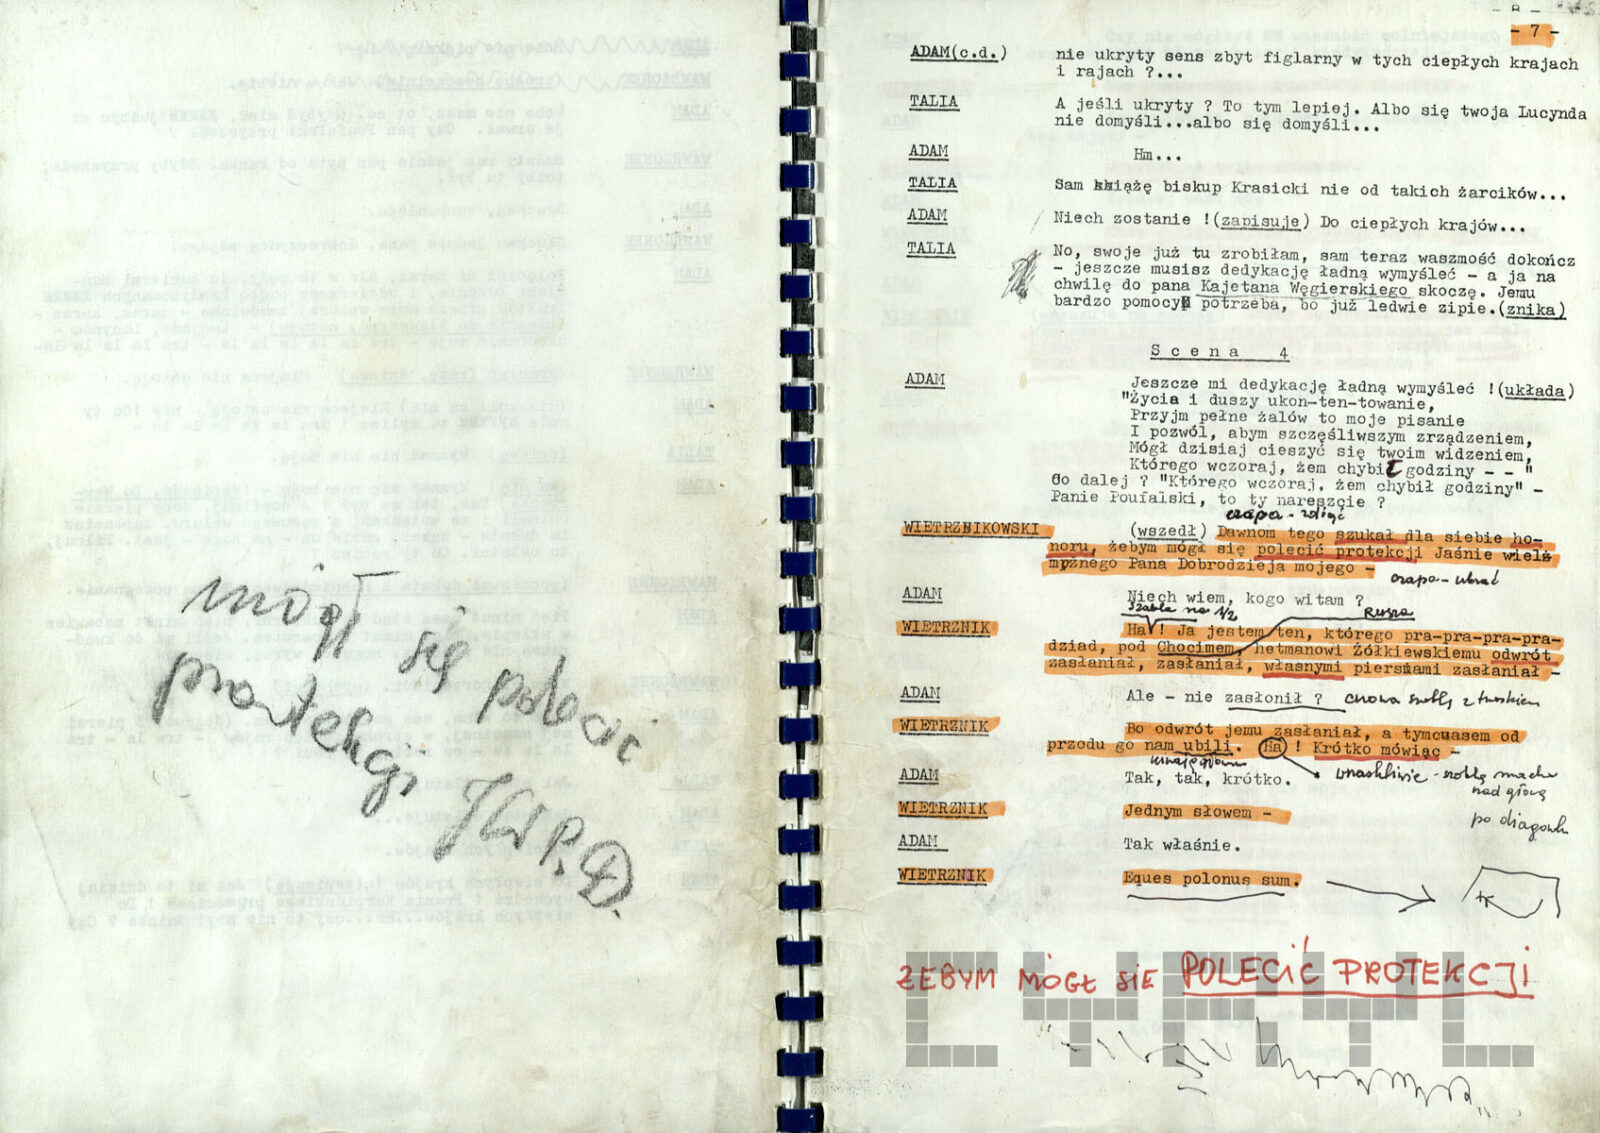 mógł się polecić
protekcji JWP.D.
- 7 -
ADAM(c.d.) nie ukryty sens zbyt figlarny w tych ciepłych krajach
i rajach ?...
TALIA A jeśli ukryty ? To tym lepiej. Albo się twoja Lucynda
nie domyśli...albo się domyśli...
ADAM Hm...
TALIA Sam książę biskup Krasicki nie od takich żarcików...
ADAM Niech zostanie !(zapisuje) Do ciepłych krajów...
TALIA No, swoje już tu zrobiłam, sam teraz waszmość dokończ
- jeszcze musisz dedykację ładną wymyśleć - a ja na
chwilę do pana Kajetana Węgierskiego skoczę. Jemu
bardzo pomocy potrzeba, bo już ledwie zipie.(znika)
Scena 4
ADAM Jeszcze mi dedykację ładną wymyśleć !(układa)
"Życia i duszy ukon-ten-towanie,
Przyjm pełne żalów to moje pisanie
I pozwól, abym szczęśliwszym zrządzeniem,
Mógł dzisiaj cieszyć się twoim widzeniem,
Którego wczoraj, żem chybił godziny - - "
Co dalej ? "Którego wczoraj, żem chybił godziny" -
Panie Poufalski, to ty nareszcie ?
czapa - zdjąć
WIETRZNIKOWSKI (wszedł) Dawnom tego szukał dla siebie ho-
noru, żebym mógł się polecić protekcji Jaśnie wiel
możnego Pana Dobrodzieja mojego -
czapa - ubrać
ADAM Niech wiem, kogo witam ?
szabla na 1/2 Rusza
WIETRZNIK Ha ! Ja jestem ten, którego pra-pra-pra-pra-
dziad, pod Chocimem, hetmanowi Żółkiewskiemu odwrót
zasłaniał, zasłaniał, własnymi piersiami zasłaniał -
ADAM Ale - nie zasłonił ? chowa szablę z trzaskiem
WIETRZNIK Bo odwrót jemu zasłaniał, a tymczasem od
przodu go nam ubili. Ha ! Krótko mówiąc -
ADAM Tak, tak, krótko.
szablą macha
nad głową
WIETRZNIK Jednym słowem -
po diagonali
ADAM Tak właśnie.
WIETRZNIK Eques polonus sum.
ŻEBYM MÓGŁ SIĘ POLECIĆ PROTEKCJI